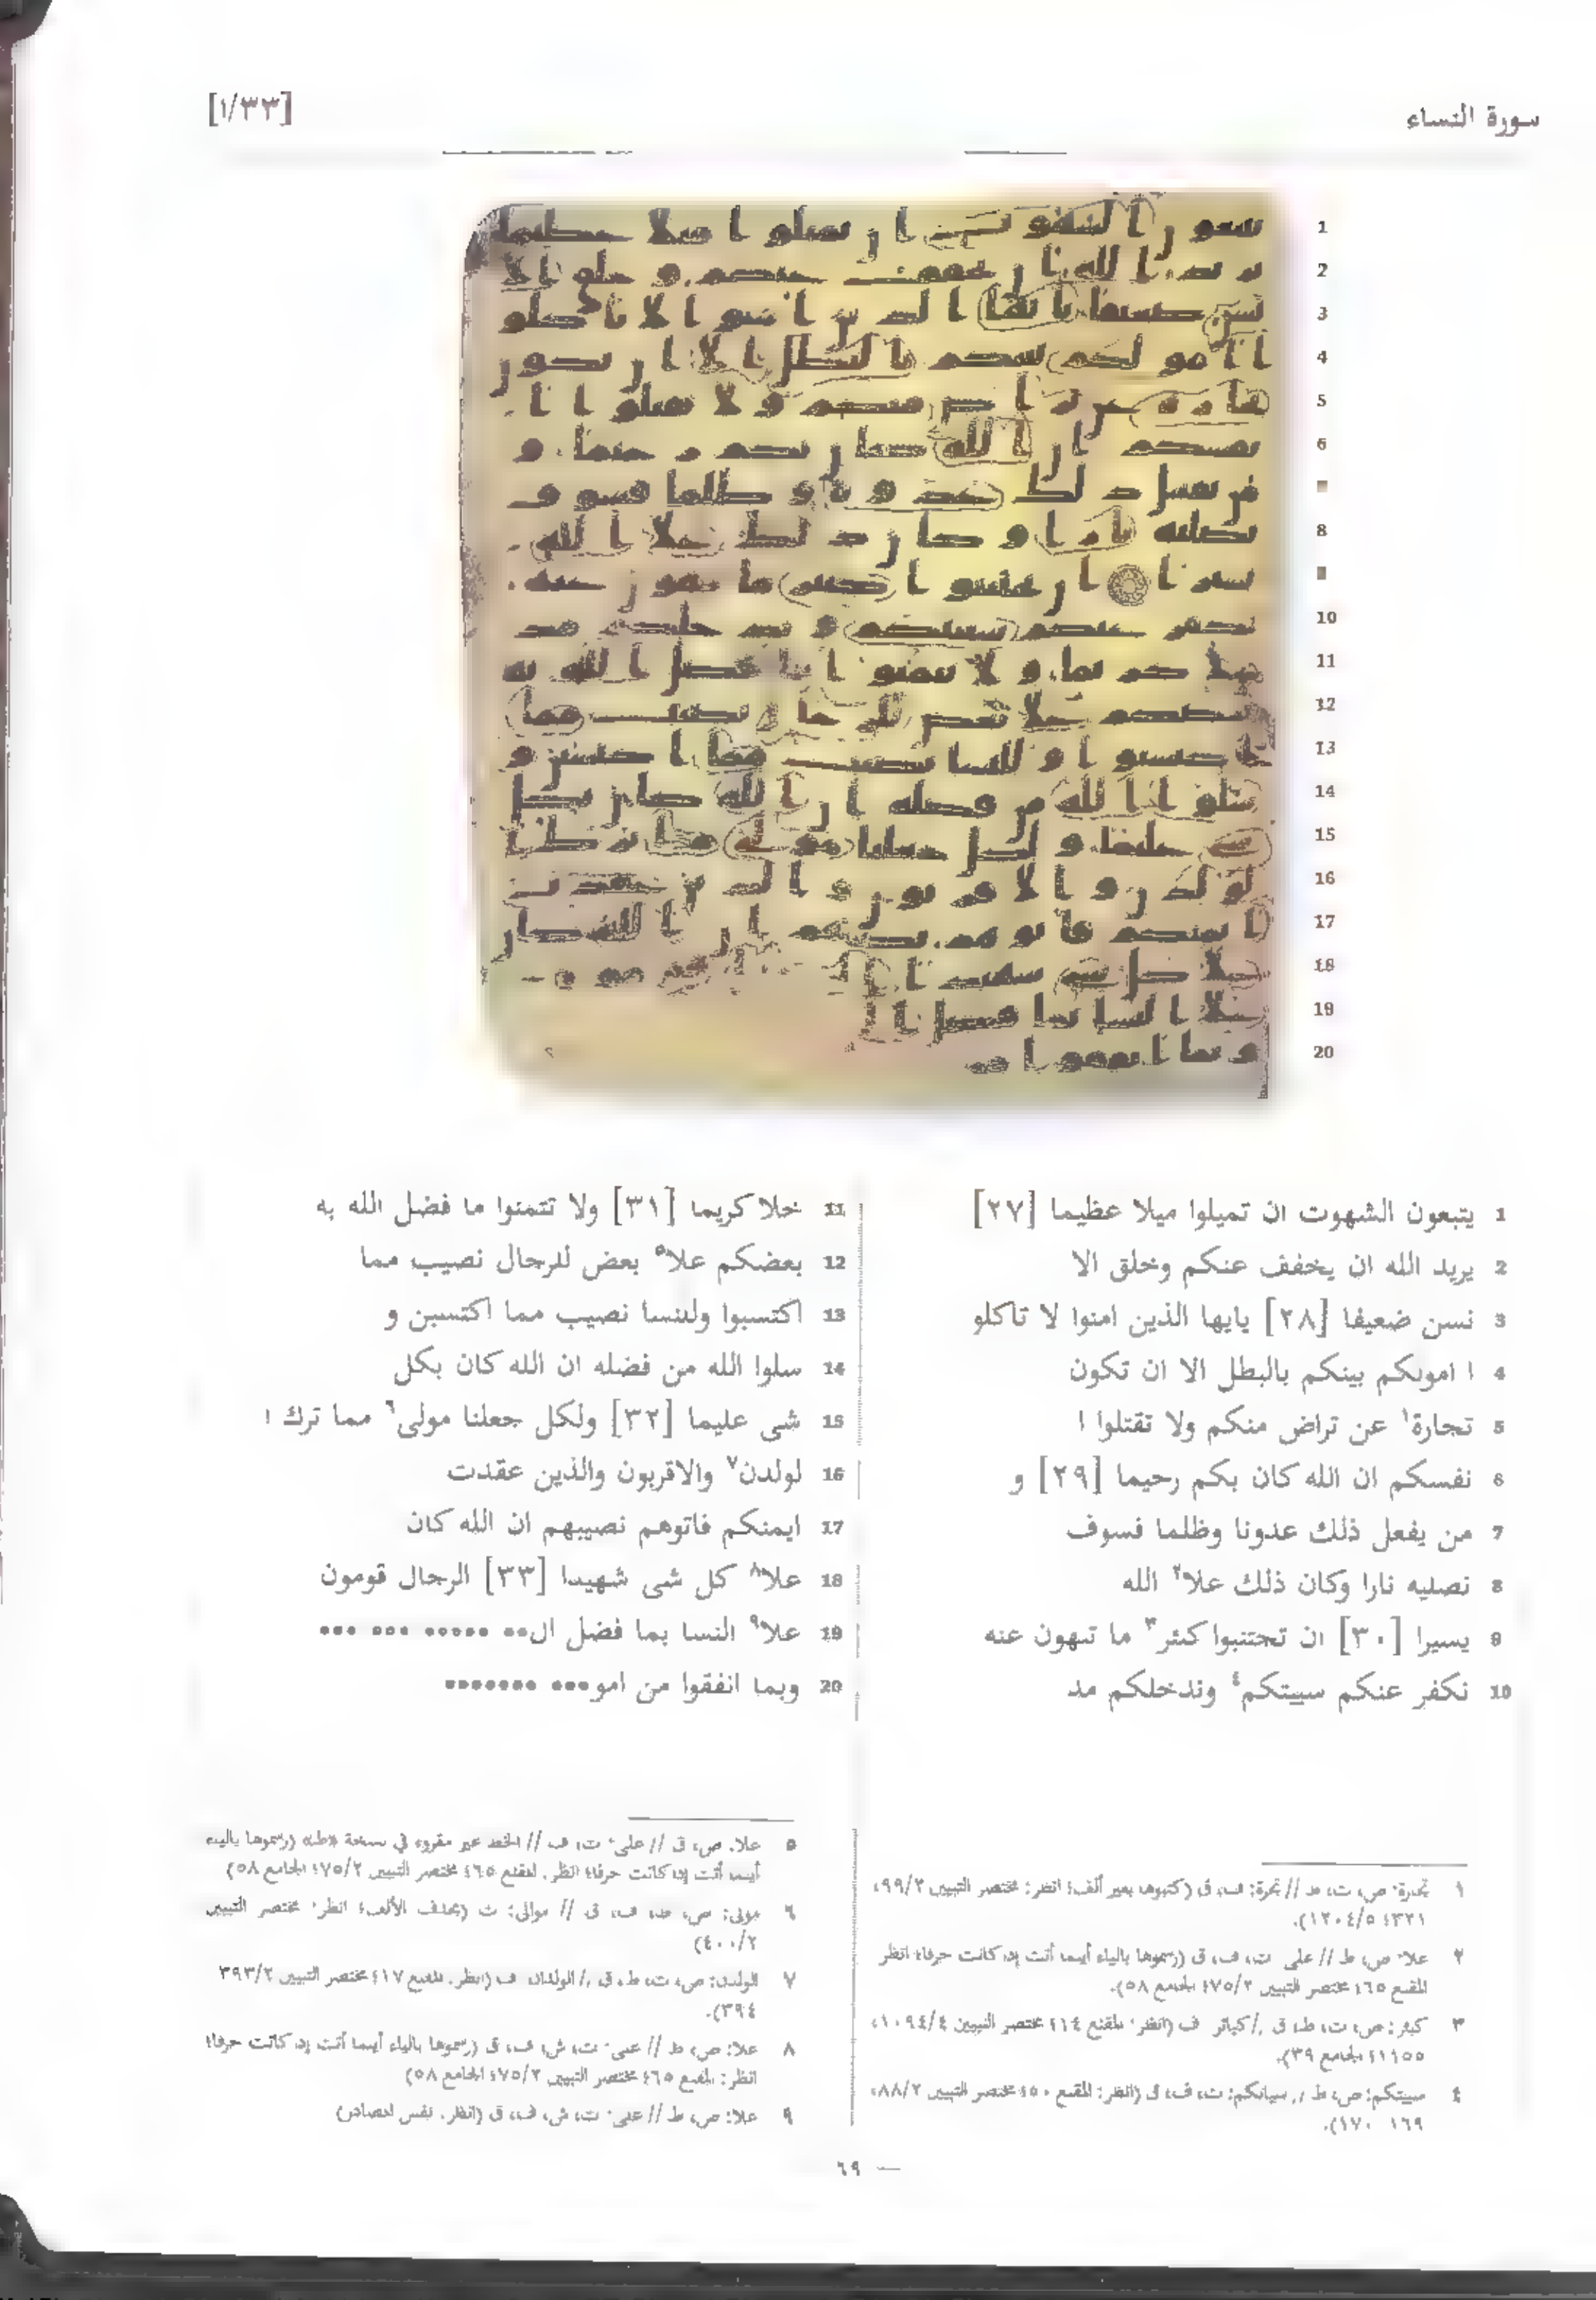 سورة النساء
[١/٣٣]
1 يتبعون الشهوت ان تميلوا ميلا عظيما [٢٧]
2 يريد الله ان يخفف عنكم وخلق الا
3 نسن ضعيفا [٢٨] يايها الذين امنوا لا تاكلو
4 ا امولكم بينكم بالبطل الا ان تكون
5 تجارة١ عن تراض منكم ولا تقتلوا ا
6 نفسكم ان الله كان بكم رحيما [٢٩] و
7 من يفعل ذلك عدونا وظلما فسوف
8 نصليه نارا وكان ذلك علا٢ الله
9 يسيرا [٣٠] ان تجتنبوا كبئر٣ ما تنهون عنه
10 نكفر عنكم سيتكم٤ وندخلكم مد
11 خلا كريما [٣١] ولا تتمنوا ما فضل الله به
12 بعضكم علا٥ بعض للرجال نصيب مما
13 اكتسبوا وللنسا نصيب مما اكتسبن و
14 سلوا الله من فضله ان الله كان بكل
15 شى عليما [٣٢] ولكل جعلنا مولى٦ مما ترك ا
16 لولدن٧ والاقربون والذين عقدت
17 ايمنكم فاتوهم نصيبهم ان الله كان
18 علا٨ كل شى شهيدا [٣٣] الرجال قومون
19 علا٩ النسا بما فضل ال•• ••••• ••• •••
20 وبما انفقوا من امو••• •••••••
١ تجارة: ص، ت، ط // تجرة: ف، ق (كتبوها بغير ألف؛ انظر: مختصر التبيين ٩٩/٢،
٣٢١؛ ١٢٠٤/٥).
٢ علا: ص، ط // على: ت، ف، ق (رسموها بالياء أينما أتت إذ كانت حرفا؛ انظر
المقنع ٦٥؛ مختصر التبيين ٧٥/٢؛ الجامع ٥٨).
٣ كبئر: ص، ت، ط، ق // كبائر: ف (انظر: المقنع ١٤؛ مختصر التبيين ١٠٩٤/٤،
١١٥٥؛ الجامع ٣٩).
٤ سيتكم: ص، ط // سياتكم: ت، ف، ق (انظر: المقنع ٥٠؛ مختصر التبيين ٨٨/٢،
١٦٩ ١٧٠).
٥ علا: ص، ق // على: ت، ف // الخط غير مقروء في نسخة «ط» (رسموها بالياء
أينما أتت إذ كانت حرفا؛ انظر: المقنع ٦٥؛ مختصر التبيين ٧٥/٢؛ الجامع ٥٨)
٦ مولى: ص، ط، ف، ق // موالى: ت (بحذف الألف؛ انظر: مختصر التبيين
٤٠٠/٢)
٧ الولدن: ص، ت، ط، ق // الولدان: ف (انظر: المقنع ١٧؛ مختصر التبيين ٣٩٣/٢
٣٩٤).
٨ علا: ص، ط // على: ت، ش، ف، ق (رسموها بالياء أينما أتت إذ كانت حرفا؛
انظر: المقنع ٦٥؛ مختصر التبيين ٧٥/٢؛ الجامع ٥٨)
٩ علا: ص، ط // على: ت، ش، ف، ق (انظر: نفس المصادر)
— ٦٩